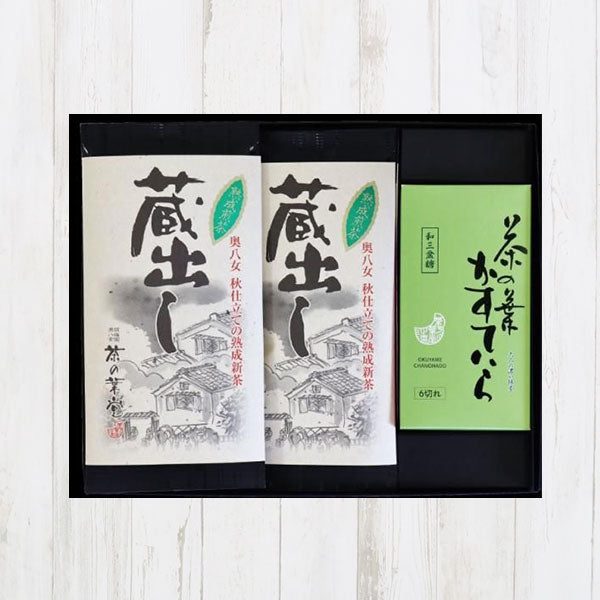 熟成煎茶
蔵出し
奥八女 秋仕立ての熟成新茶
茶の葉堂
熟成煎茶
蔵出し
奥八女 秋仕立ての熟成新茶
茶の葉
かすてぃら
和三盆糖
OKUYAME
CHANOHADO
6切れ